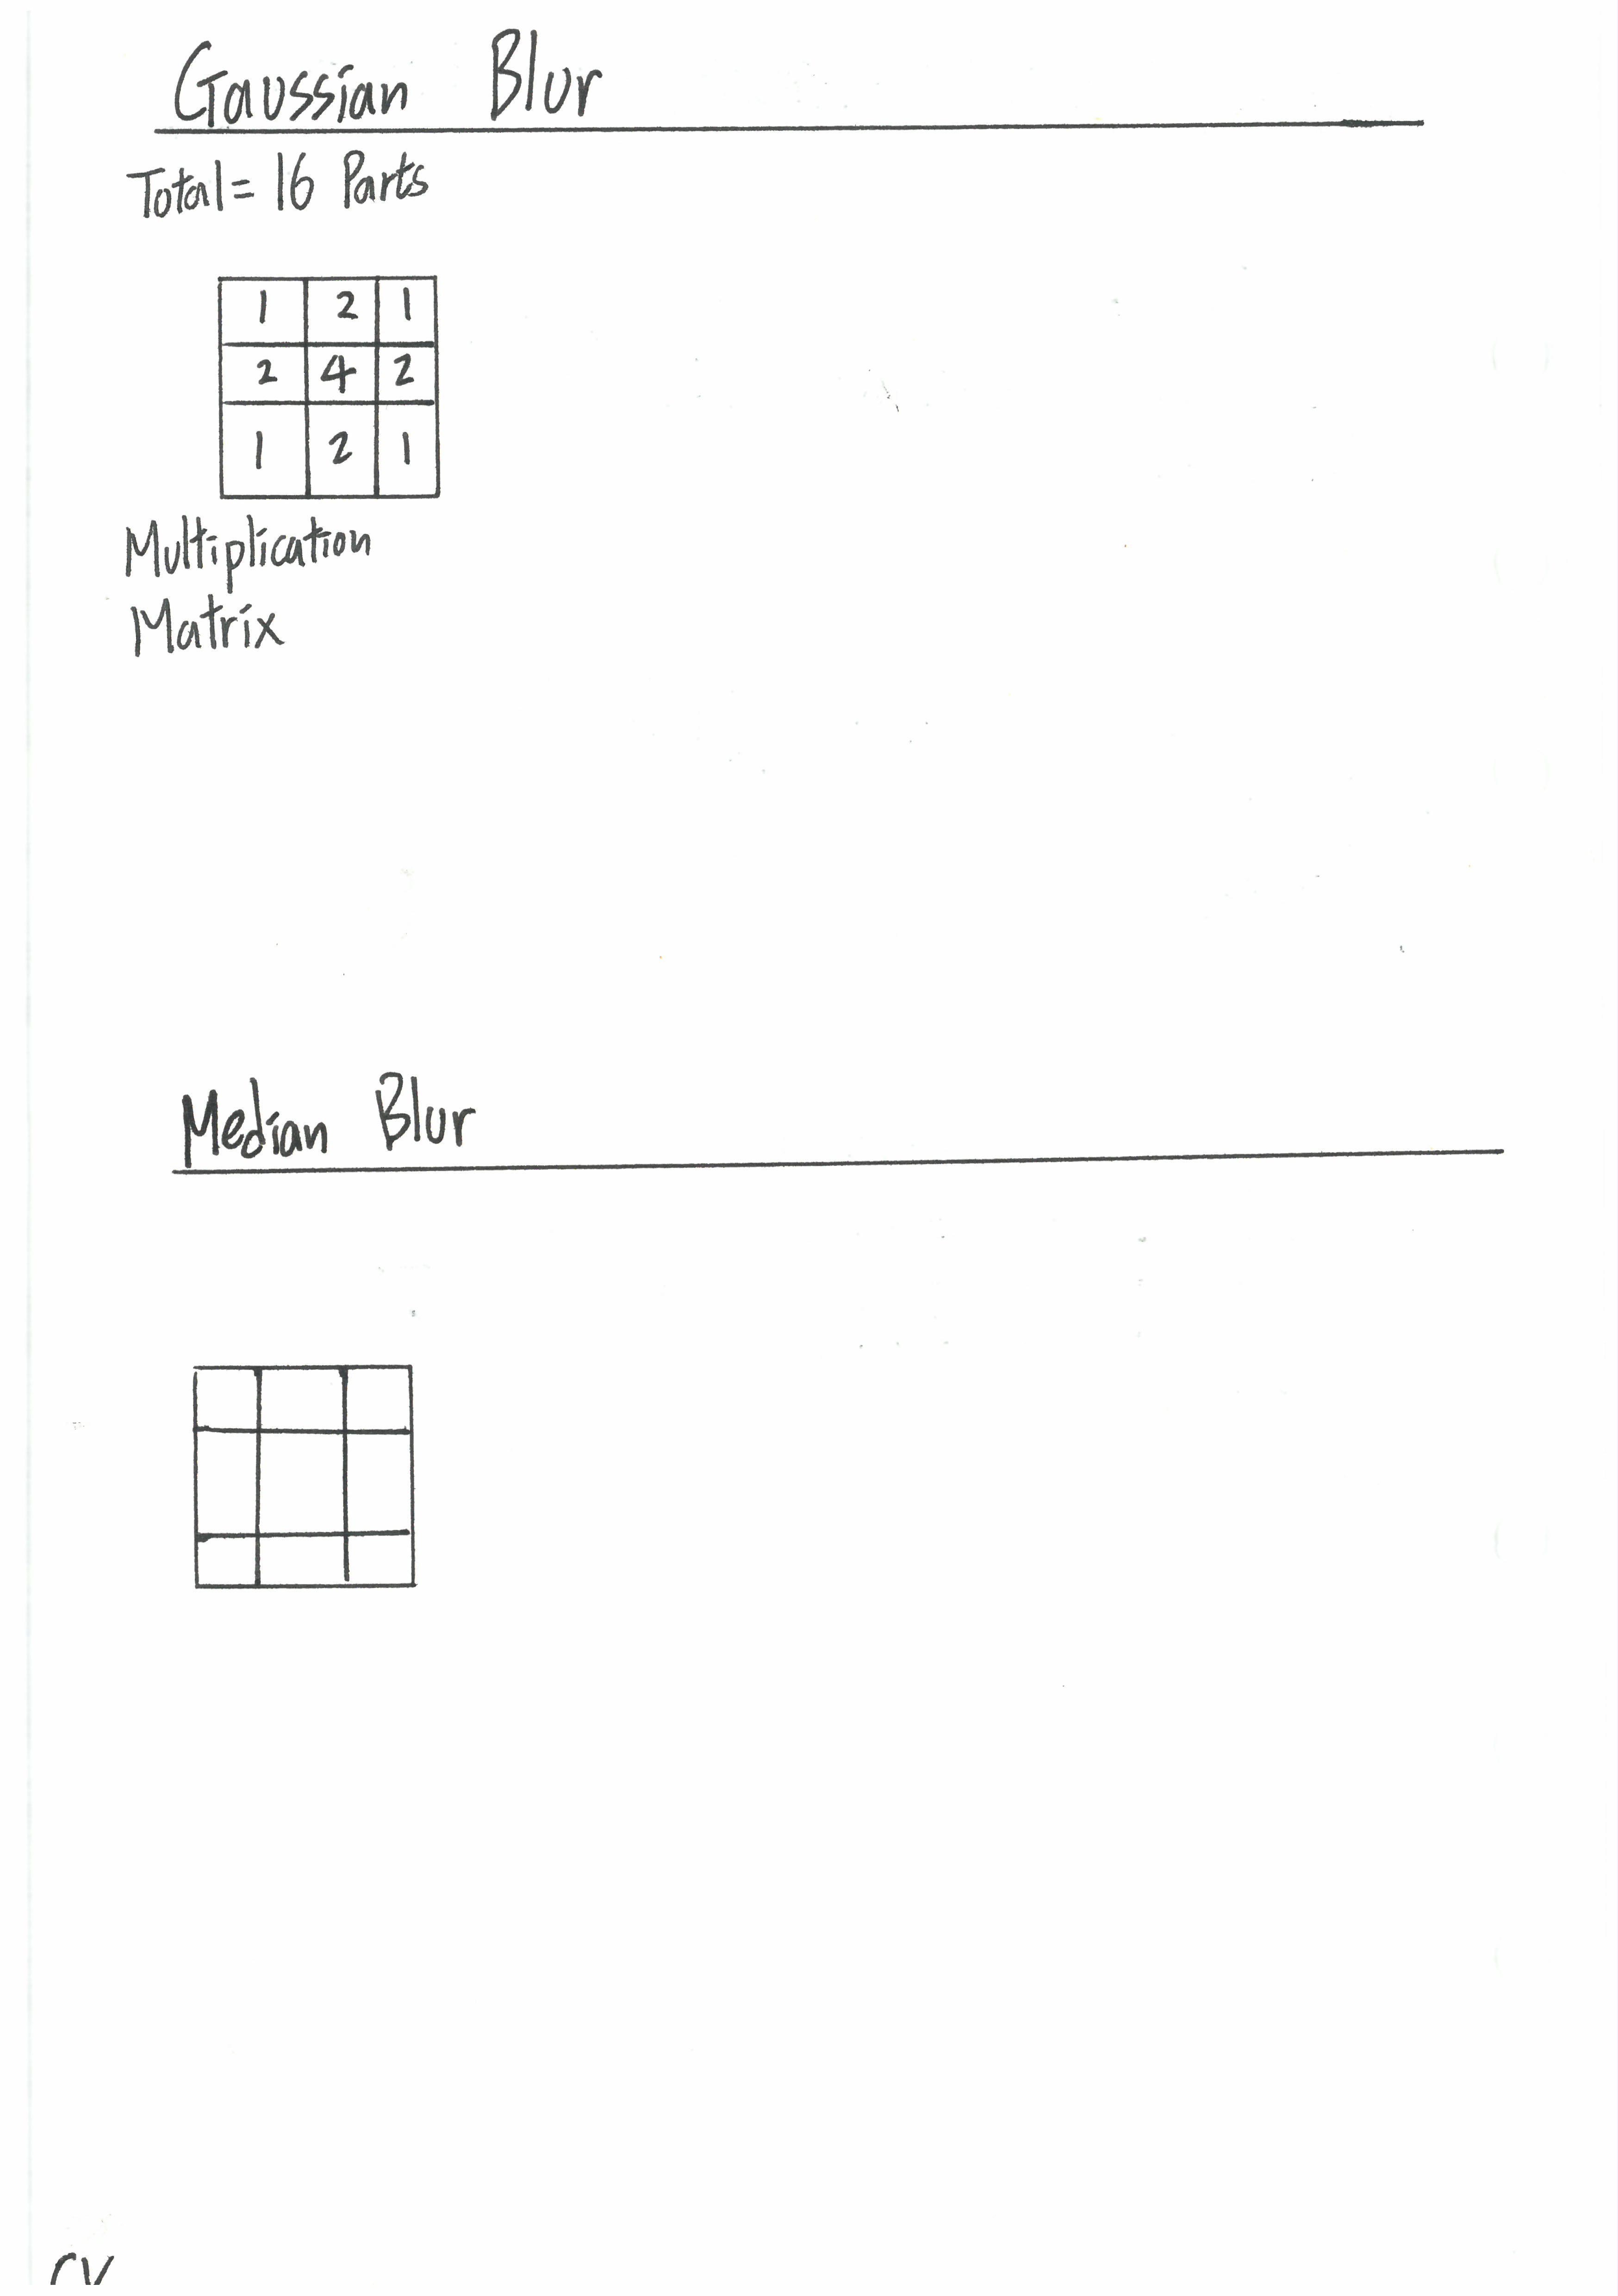 Gaussian Blur
Total = 16 Parts
1 2 1
2 4 2
1 2 1
Multiplication
Matrix
Median Blur